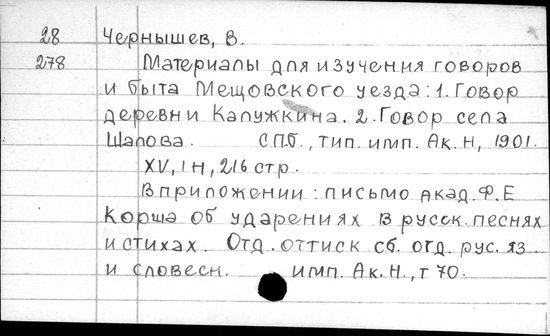 28 Чернышев, В.
278 Материалы для изучения говоров
и быта Мещовского уезда: 1. Говор
деревни Калужкина. 2. Говор села
Шалова. СПб., тип. имп. Ак. Н, 1901.
XV, 1н, 216 стр.
В приложении: письмо акад. Ф. Е
Корша об ударениях в русск. песнях
и стихах. Отд. оттиск сб. отд. рус. яз
и словесн. имп. Ак. Н., т 70.